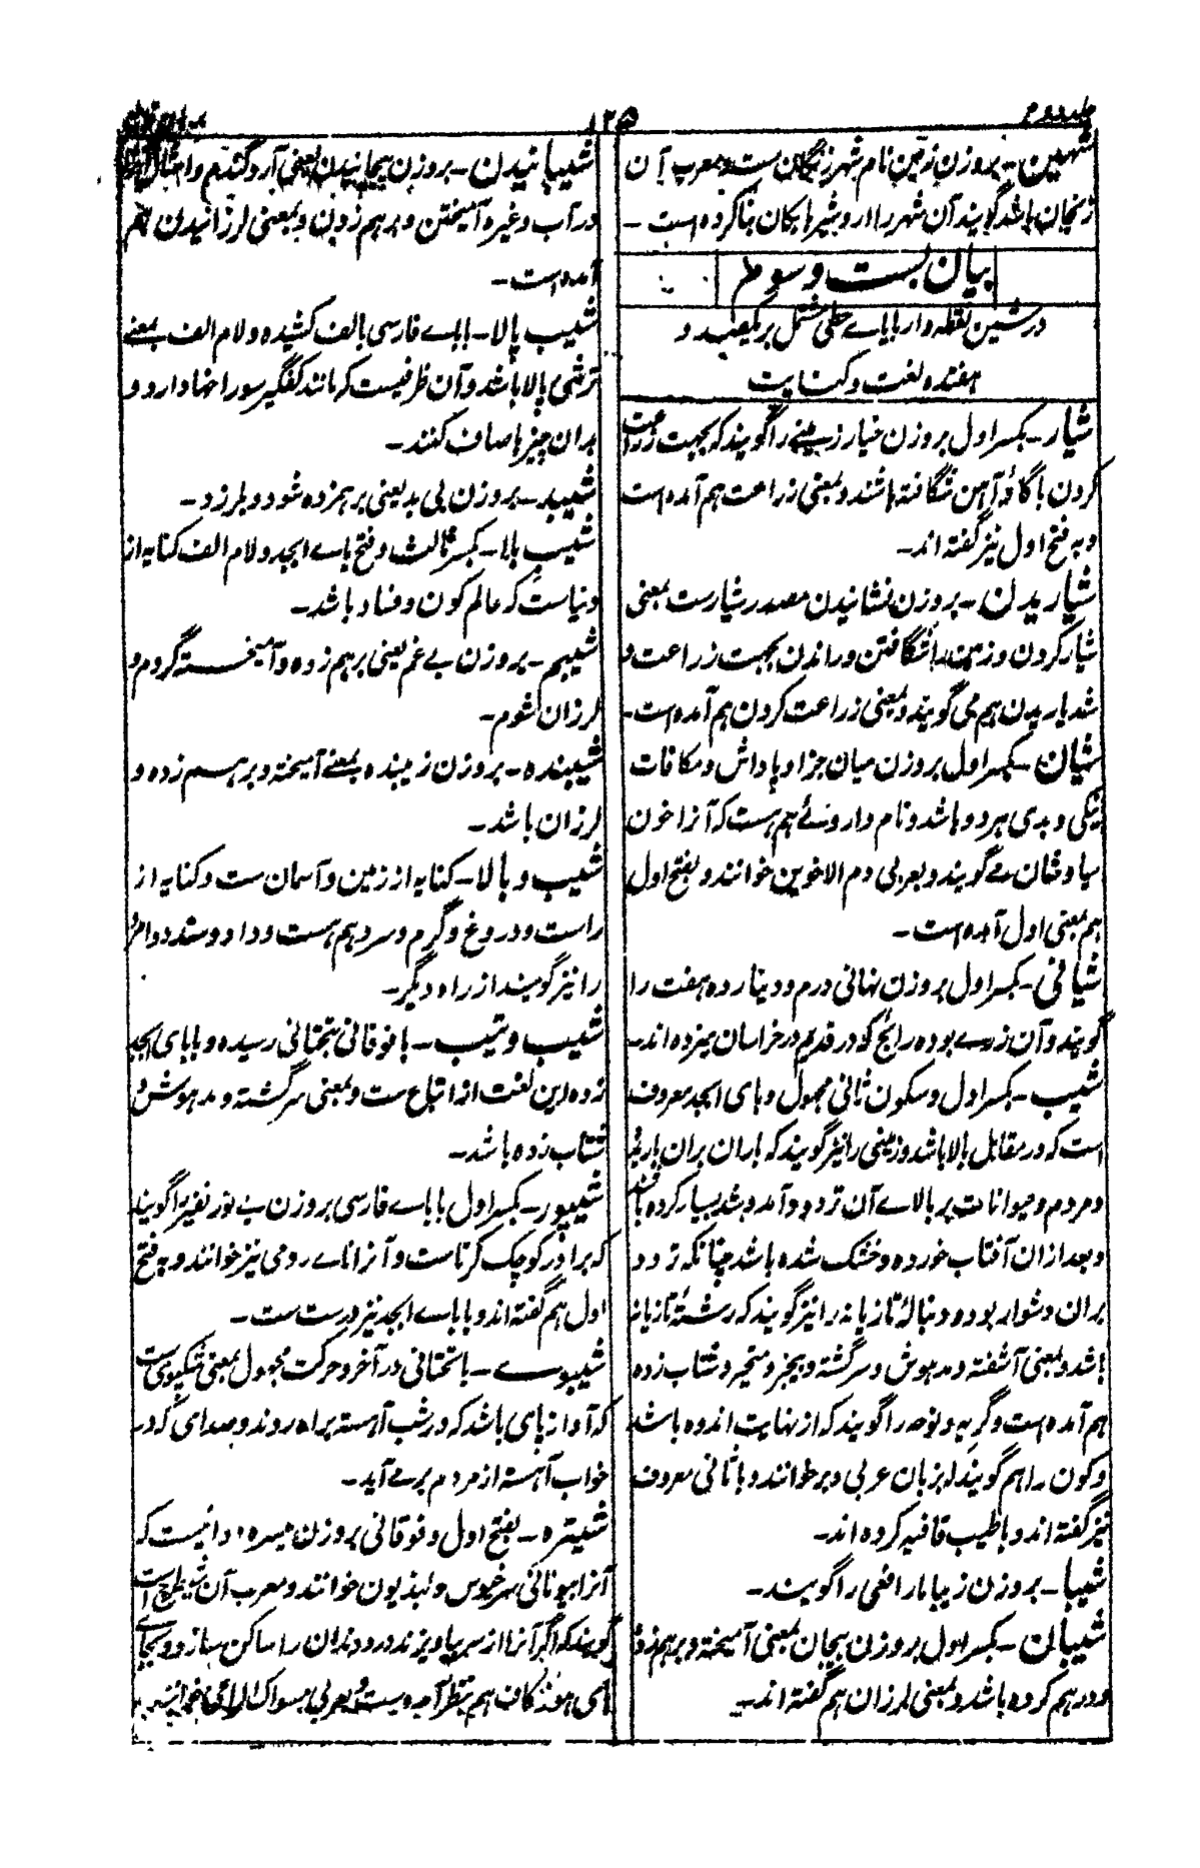 جلد دوم
۱۲۵
شهین - بروزن نوین نام شهر زنگان ست و معرب آن
زنجان باشد گویند آن شهر را اردشیر بابکان بنا کرده است -
بیان بست و سوم
در شین نقطه دار با یاے حطی مشتمل بر یکصد و
هفده لغت و کنایت
شیار - بکسر اول بروزن خیار زمینے را گویند که بجهت زراعت
کردن با گاؤ آهن شگافته باشند و بمعنی زراعت هم آمده است
و به فتح اول نیز گفته اند -
شیاریدن - بروزن نشانیدن مصدر شیارست بمعنی
شیار کردن و زمین را شگافتن و راندن بجهت زراعت و
شدیاریدن هم می گویند و بمعنی زراعت کردن هم آمده است -
شیان - بکسر اول بروزن میان جزا و پاداش و مکافات
نیکی و بدی هر دو باشد و نام داروئے هم هست که آنرا خون
سیاوشان مے گویند و بعربی دم الاخوین خوانند و بفتح اول
هم بمعنی اول آمده است -
شیانی - بکسر اول بروزن نهانی درم و دینار ده هفت را
گویند و آن زرے بوده رایج که در قدیم در خراسان میزده اند -
شیب - بکسر اول و سکون ثانی مجهول و بای ابجد معروف
است که در مقابل بالا باشد و زمینی را نیز گویند که باران بران باریده
و مردم و حیوانات بر بالاے آن تردد و آمد و شد بسیار کرده باشند
و بعد ازان آفتاب خورده و خشک شده باشد چنانکه تردد
بران دشوار بود و دنبالهٔ تازیانه را نیز گویند که رشتهٔ تازیانه
باشد و بمعنی آشفته و مدهوش و سرگشته و بیخبر و متحیر و شتاب زده
هم آمده است و گریه و نوحه را گویند که از نهایت اندوه باشد
و کون را هم گویند و بزبان عربی دبر خوانند و با ثانی معروف
نیز گفته اند و با طیب قافیه کرده اند -
شیبا - بروزن زیبا مار افعی را گویند -
شیبان - بکسر اول بروزن بیجان بمعنی آمیخته و برهم زده
و درهم کرده باشد و بمعنی لرزان هم گفته اند -
شیبانیدن - بروزن پیچانیدن بمعنی آرد گندم و امثال آنرا
در آب و غیره آمیختن و برهم زدن و بمعنی لرزانیدن هم
آمده است -
شیب پالا - با باے فارسی بالف کشیده و لام الف بمعنے
ترشی پالا باشد و آن ظرفیست که مانند کفگیر سوراخها دارد و
بدان چیزها صاف کنند -
شیبد - بروزن بی بد یعنی برهمزده شود و بلرزد -
شیب بالا - بکسر ثالث و فتح باے ابجد و لام الف کنایه از
دنیاست که عالم کون و فساد باشد -
شیبم - بروزن بے غم یعنی برهم زده و آمیخته گردم و
لرزان شوم -
شیبنده - بروزن زیبنده بمعنے آمیخته و برهم زده و
لرزان باشد -
شیب و بالا - کنایه از زمین و آسمان ست و کنایه از
راست و دروغ و گرم و سرد هم هست و داد و ستد
را نیز گویند از راه دیگر -
شیب و تیب - با فوقانی بتحتانی رسیده و بابای ابجد
زده این لغت از اتباع ست و بمعنی سرگشته و مدهوش و
شتاب زده باشد -
شیپور - بکسر اول با باے فارسی بروزن بے نور نفیر را گویند
که برادر کوچک کرناست و آنرا نے رومی نیز خوانند و به فتح
اول هم گفته اند و با باے ابجد نیز درست ست -
شیبوے - با تحتانی در آخر و حرکت مجهول بمعنی شکیوی ست
که آواز پای باشد که در شب آهسته براه روند و صدای که در
خواب آهسته از مردم برے آید -
شیتره - بفتح اول و فوقانی بروزن میسره دوائیست که
آنرا بیونانی سرخوس و لیذیون خوانند و معرب آن شیطرج است
گویند که اگر آنرا از سر بیاویزند درد دندان را ساکن سازد و بجای
تای هوز کاف هم بنظر آمده است و بعربی مسواک الراعی خوانند